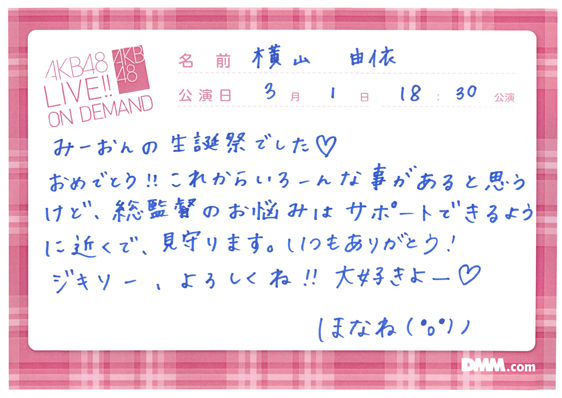 AKB48
LIVE!!
ON DEMAND
AKB
48
名前 横山 由依
公演日 3月1日 18:30公演
みーおんの生誕祭でした♡
おめでとう!!これからいろーんな事があると思う
けど、総監督のお悩みはサポートできるよう
に近くで、見守ります。いつもありがとう!
ジキソー、よろしくね!!大好きよー♡
ほなね(°o°)ノ
DMM.com